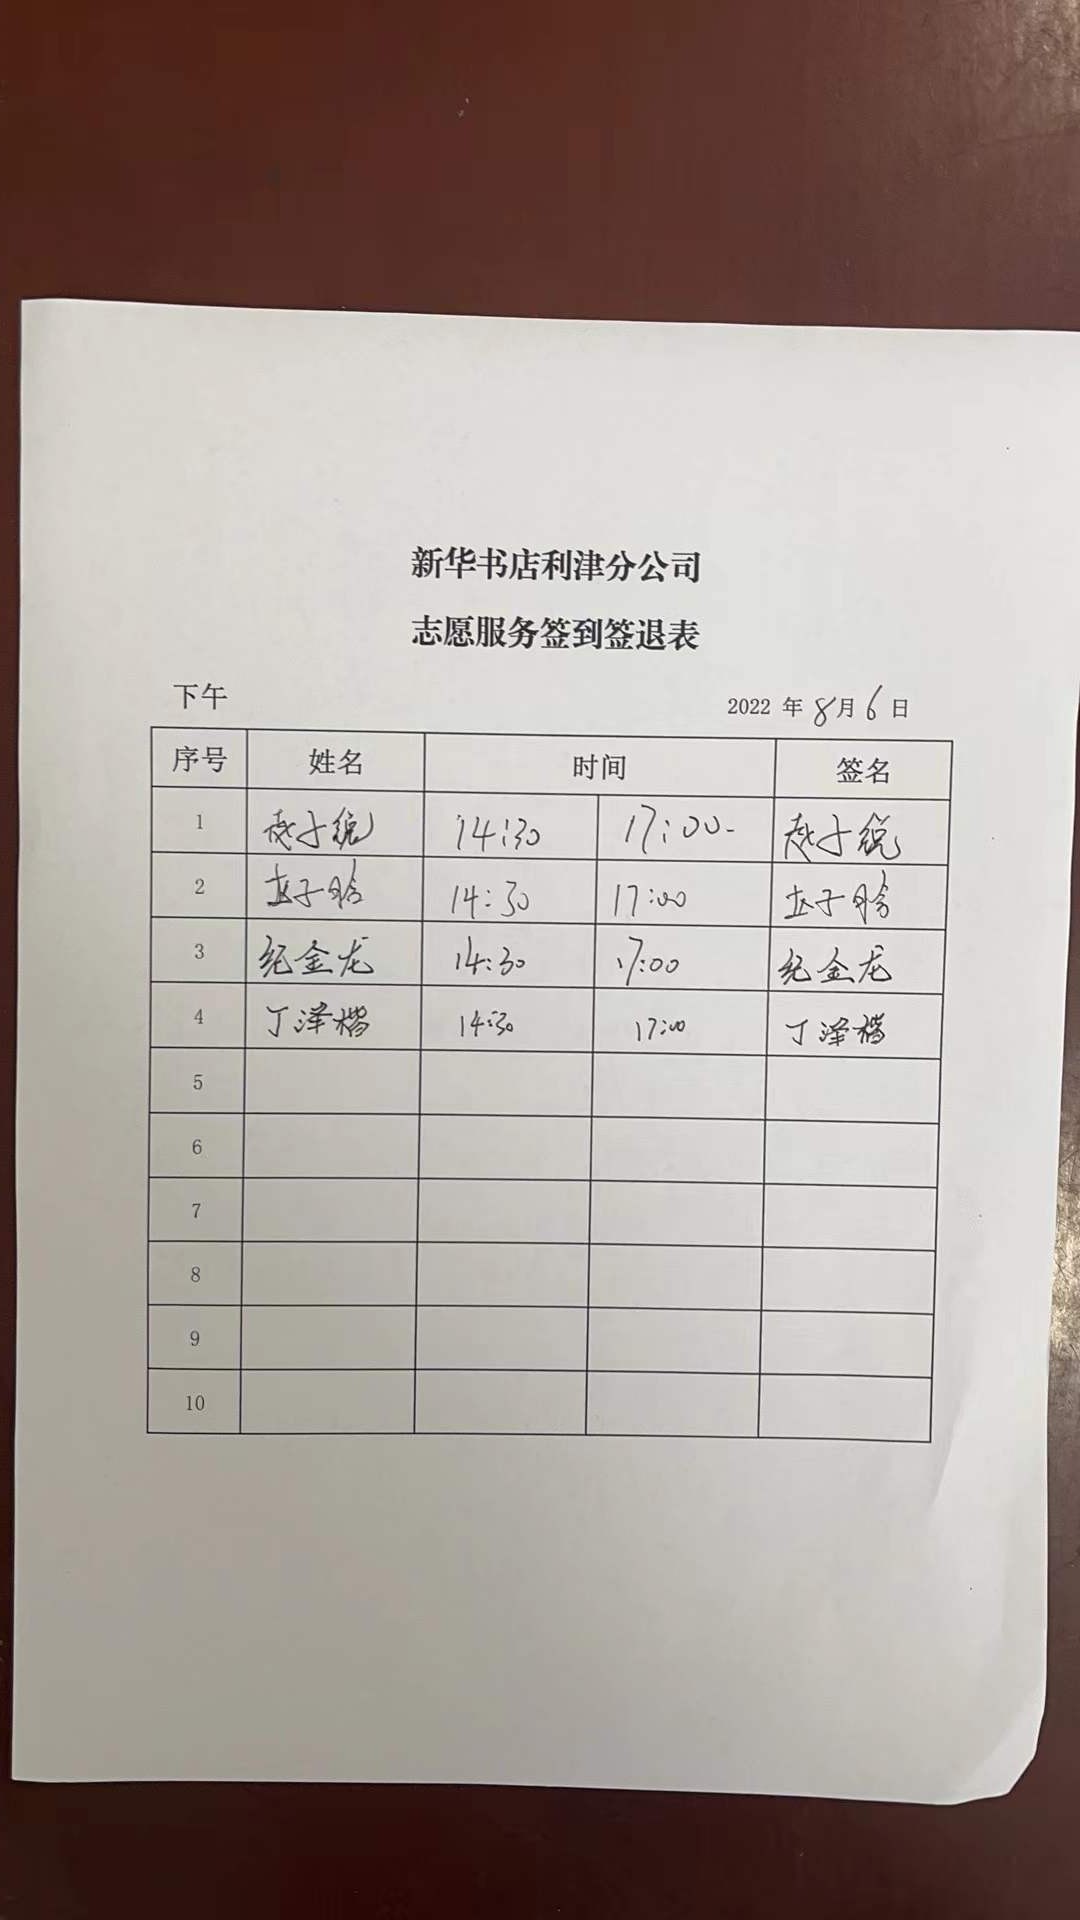 新华书店利津分公司
志愿服务签到签退表
下午 2022 年 8月 6 日
序号 姓名 时间 签名
1 14:30 17:00
2 子晗 14:30 17:00 子晗
3 纪金龙 14:30 17:00 纪金龙
4 丁泽楷 14:30 17:00 丁泽楷
5
6
7
8
9
10